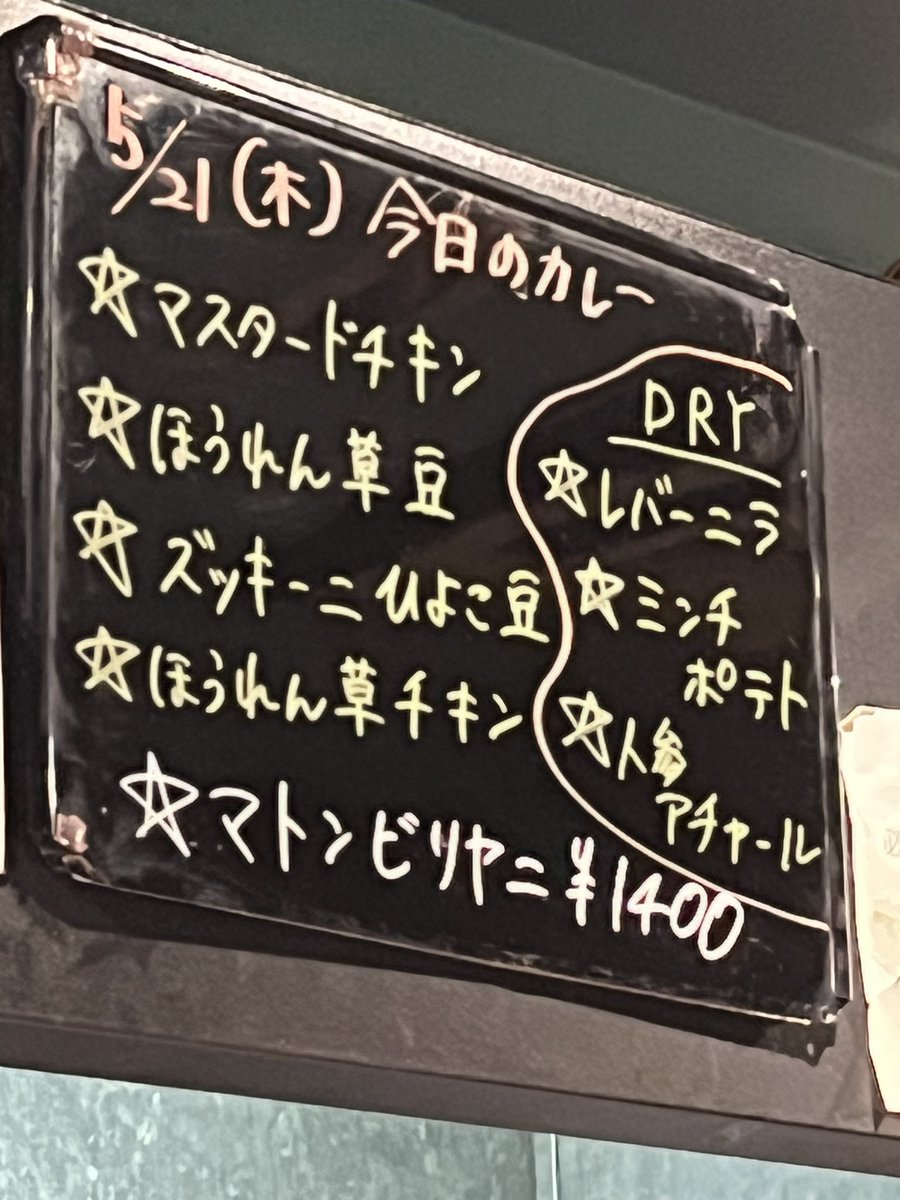 5/21(木) 今日のカレー
☆マスタードチキン
☆ほうれん草豆
☆ズッキーニひよこ豆
☆ほうれん草チキン
DRY
☆レバーニラ
☆ミンチ
ポテト
☆人参
アチャール
☆マトンビリヤニ ¥1400